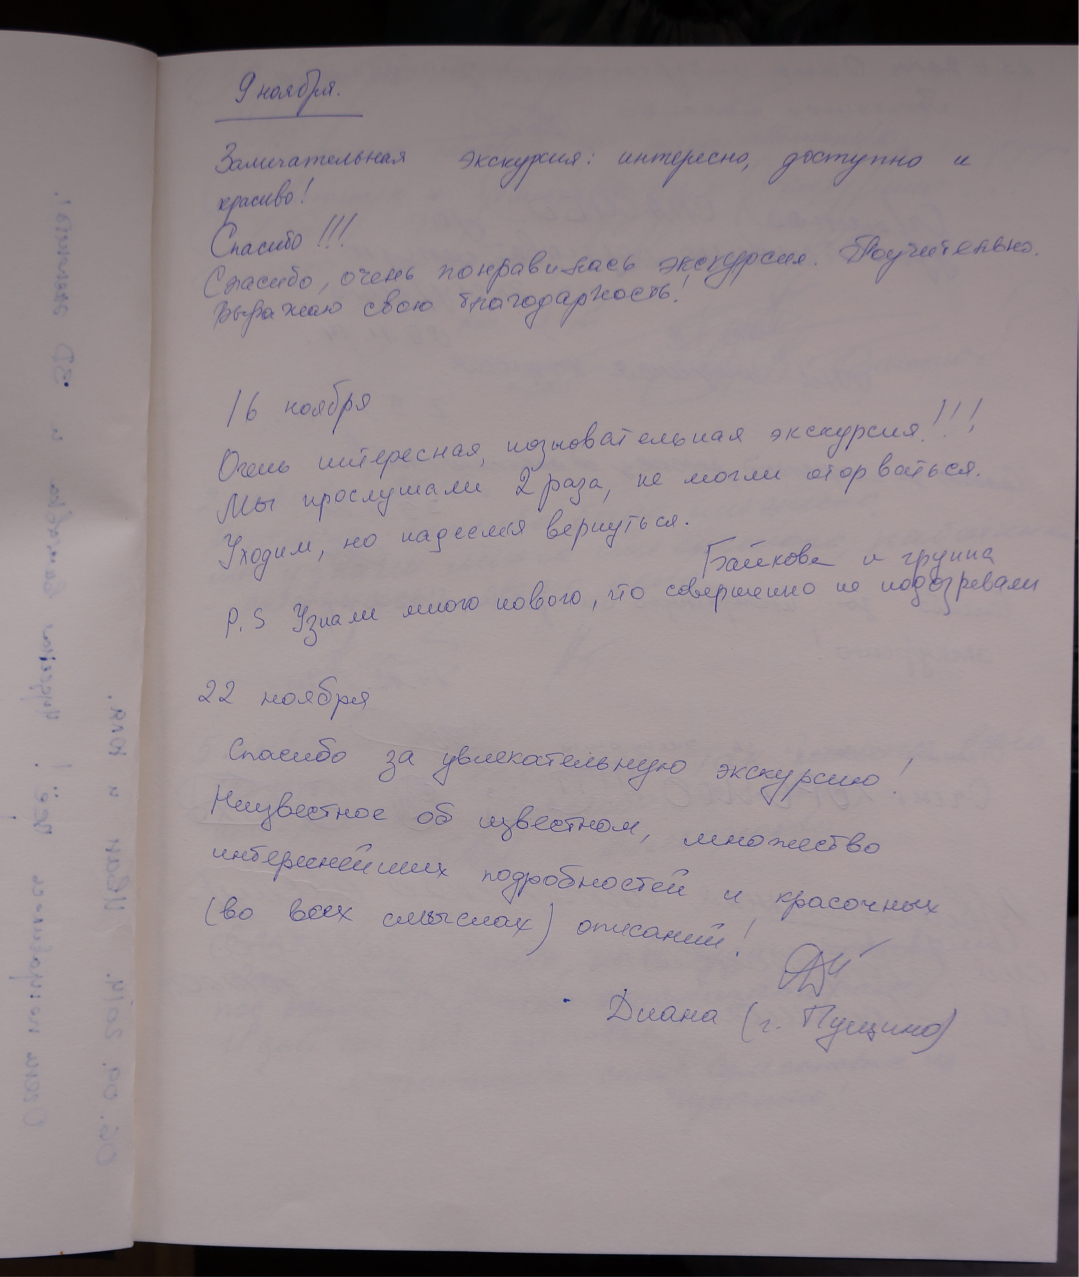 9 ноября.
Замечательная экскурсия: интересно, доступно и
красиво!
Спасибо!!!
Спасибо, очень понравилась экскурсия. Поучительно.
Выражаю свою благодарность!
16 ноября
Очень интересная, познавательная экскурсия!!!
Мы прослушали 2 раза, не могли оторваться.
Уходим, но надеемся вернуться.
Байкова и группа
P.S Узнали много нового, что совершенно не подозревали
22 ноября
Спасибо за увлекательную экскурсию!
Неизвестное об известном, множество
интереснейших подробностей и красочных
(во всех смыслах) описаний!
Диана (г. Пущино)
Очень понравилось всё!
06.09.2014. Иван и Юля.